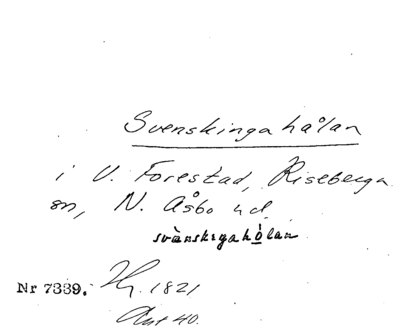 Svenskingahålan
i V. Forestad, Riseberga
sn, N. Åsbo hd.
svänskıgahȯlan
Nr 7339. Hg. 1821
Ant 40.